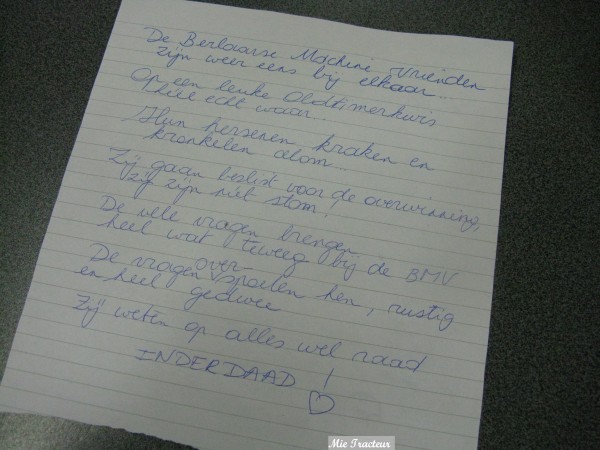 De Berlaarse Machine Vrienden
zijn weer eens bij elkaar...
Op een leuke Oldtimerkwis
hele echt waar...
Hun hersenen kraken en
kronkelen alom...
Zij gaan beslist voor de overwinning,
zij zijn niet stom!
De vele vragen brengen
heel wat teweeg bij de BMV
De vragen over spoelen hen, rustig
en heel gedwee
Zij weten op alles wel raad
INDERDAAD !
Mie Tracteur